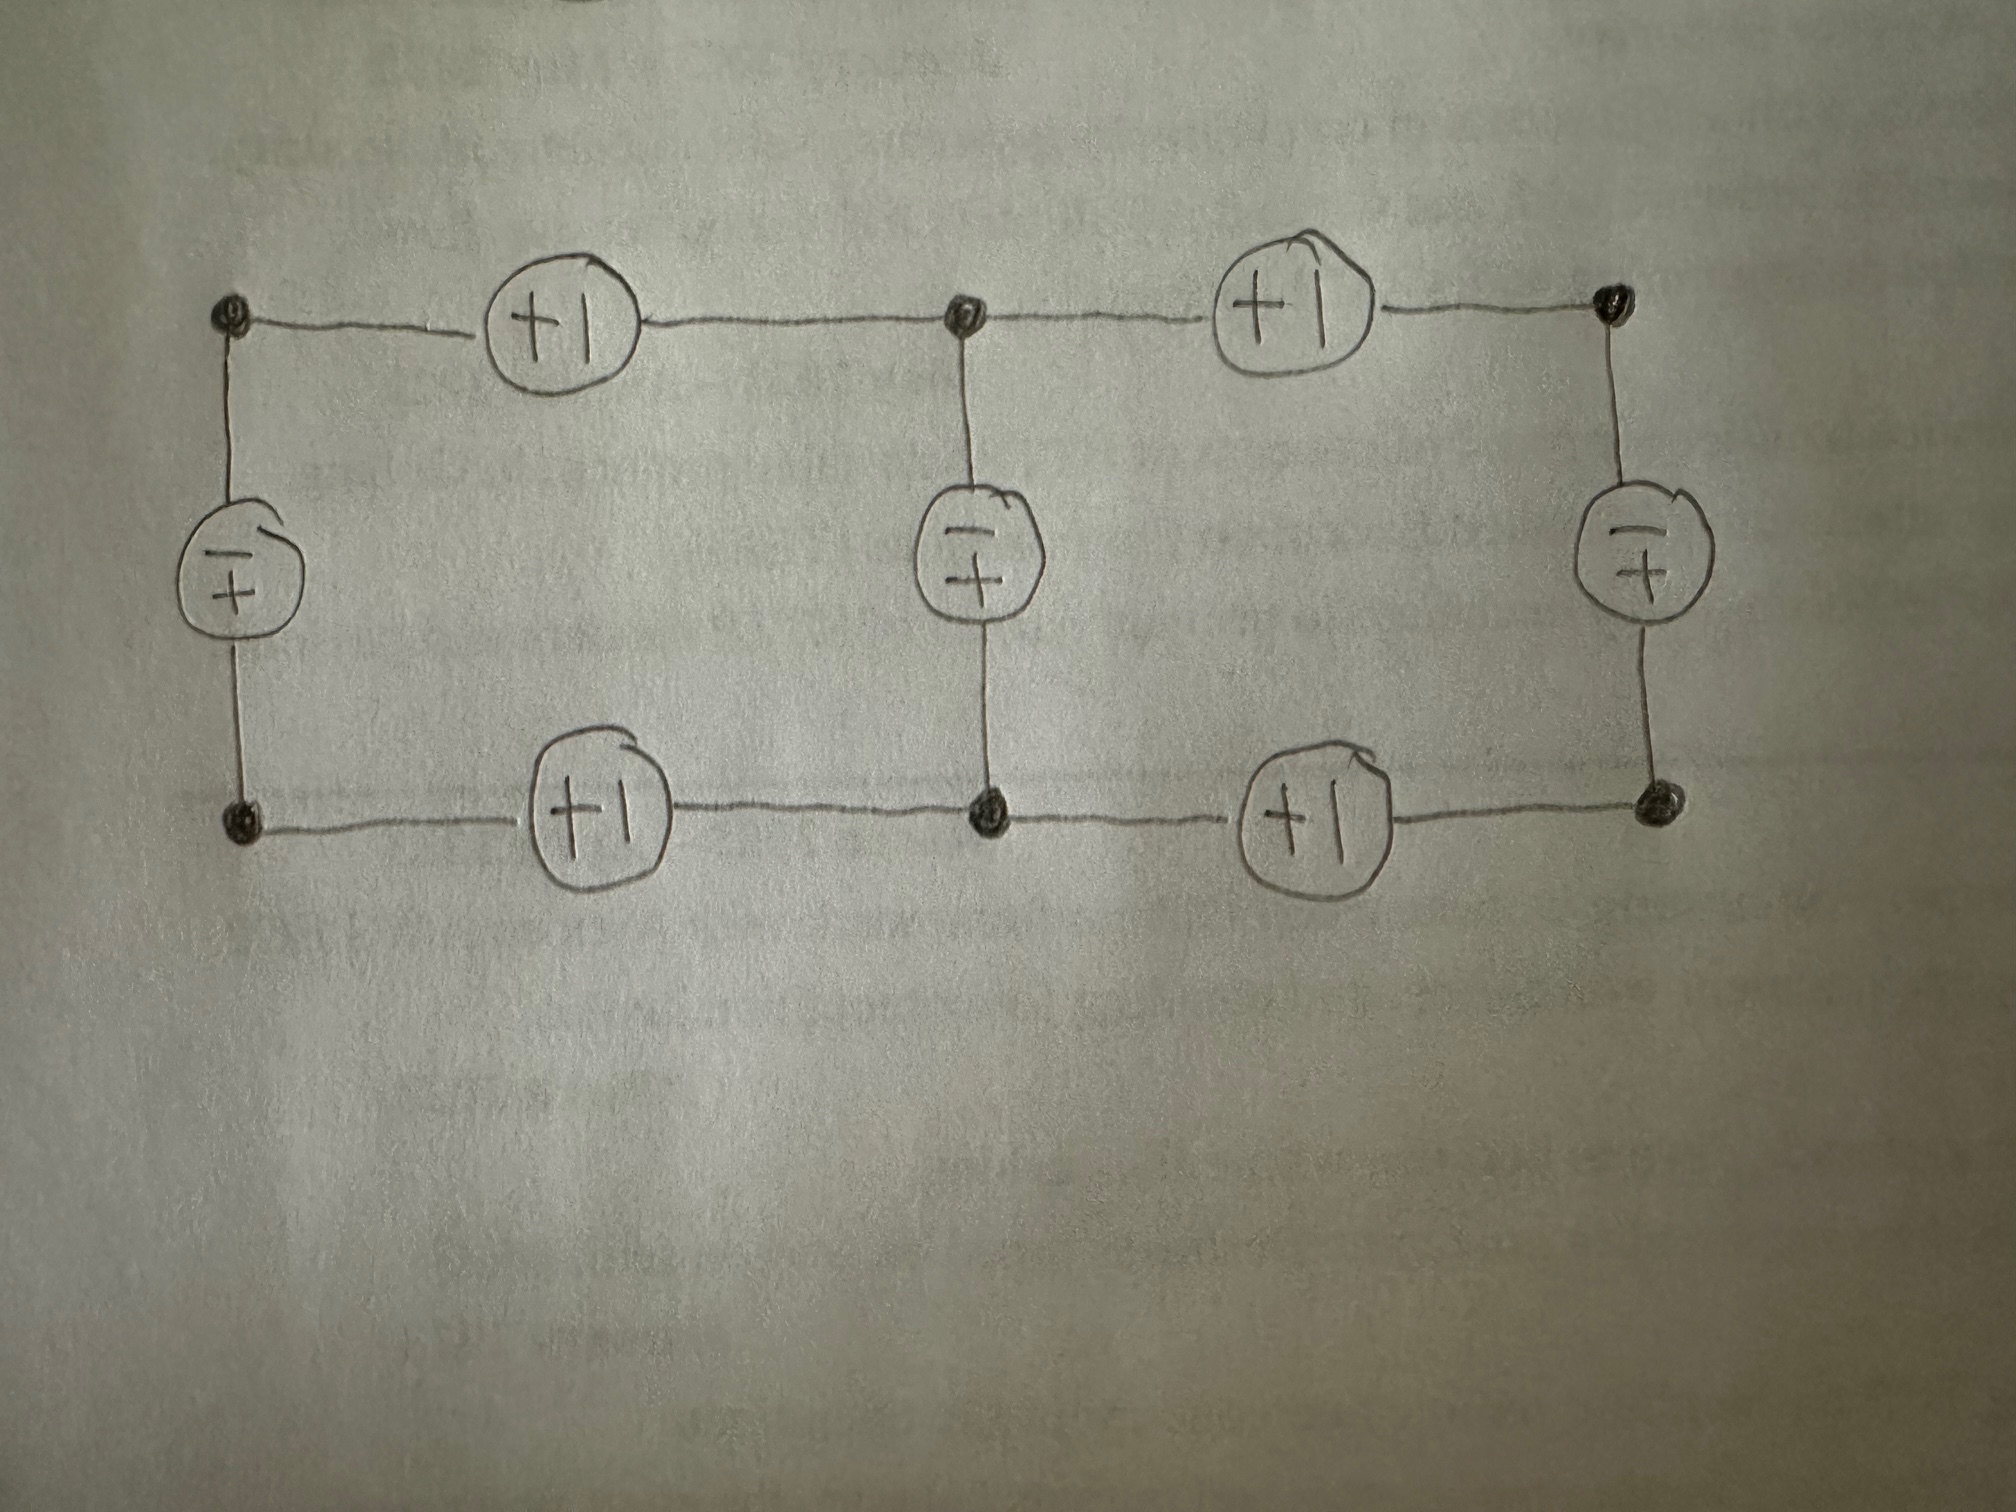 + | + |
− − −
+ + +
+ | + |